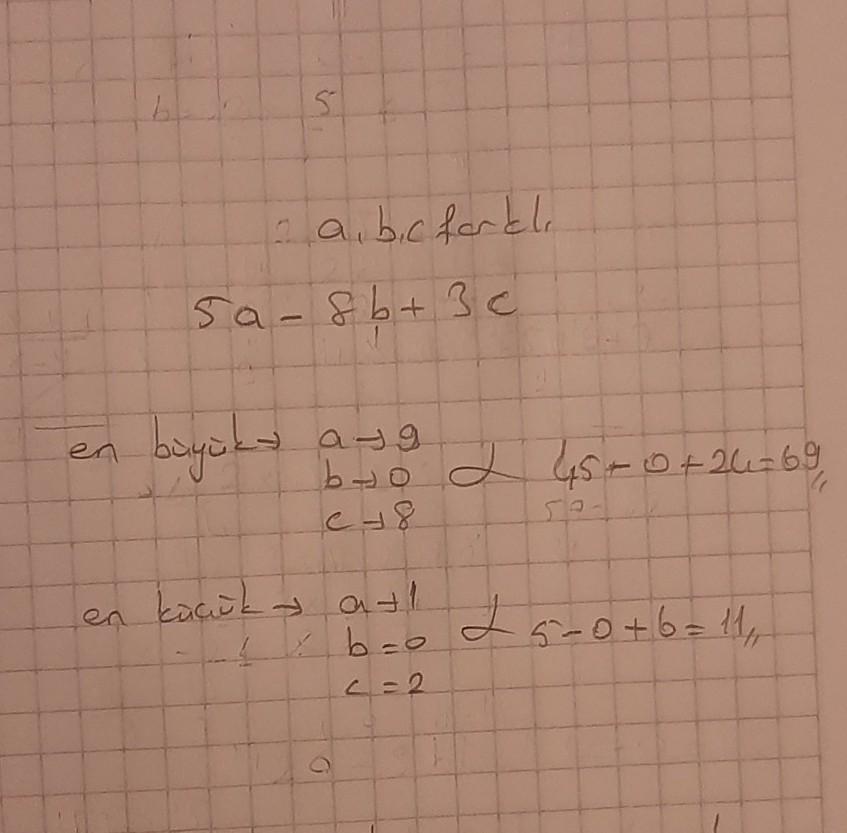 b 5
= a, b, c farklı
5a - 8b + 3c
en büyük → a → 9
b → 0
45 - 0 + 24 = 69
c → 8
en küçük → a → 1
b = 0
5 - 0 + 6 = 11
c = 2